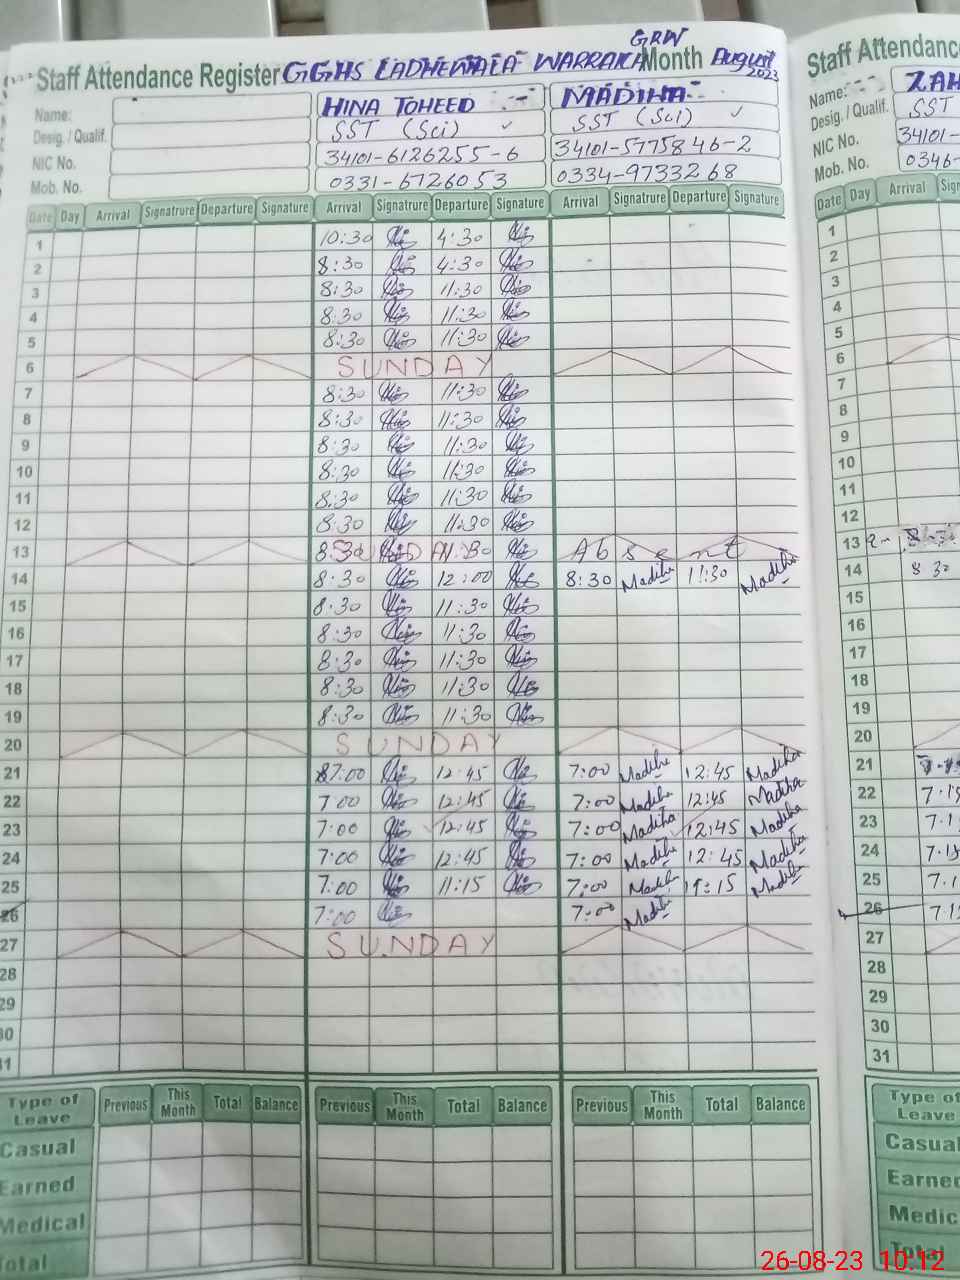 Staff Attendance Register GGHS LADHEWALA WARRAICH GRW Month August 2023
Name: HINA TOHEED MADIHA
Desig. / Qualif. SST (Sci) SST (Sci)
NIC No. 34101-6126255-6 34101-5775846-2
Mob. No. 0331-6726053 0334-9733268
Date Day Arrival Signatrure Departure Signature Arrival Signatrure Departure Signature Arrival Signatrure Departure Signature
1 10:30 4:30
2 8:30 4:30
3 8:30 11:30
4 8:30 11:30
5 8:30 11:30
6 SUNDAY
7 8:30 11:30
8 8:30 11:30
9 8:30 11:30
10 8:30 11:30
11 8:30 11:30
12 8:30 11:30
13 8:30 SUNDAY 11:30 Absent
14 8:30 12:00 8:30 Madiha 11:30 Madiha
15 8:30 11:30
16 8:30 11:30
17 8:30 11:30
18 8:30 11:30
19 8:30 11:30
20 SUNDAY
21 7:00 12:45 7:00 Madiha 12:45 Madiha
22 7:00 12:45 7:00 Madiha 12:45 Madiha
23 7:00 12:45 7:00 Madiha 12:45 Madiha
24 7:00 12:45 7:00 Madiha 12:45 Madiha
25 7:00 11:15 7:00 Madiha 11:15 Madiha
26 7:00 7:00 Madiha
27 SUNDAY
28
29
30
31
Type of Leave Previous This Month Total Balance Previous This Month Total Balance Previous This Month Total Balance
Casual
Earned
Medical
Total
Staff Attendance
Name: ZAH
Desig. / Qualif. SST
NIC No. 34101-
Mob. No. 0346-
Date Day Arrival
1
2
3
4
5
6
7
8
9
10
11
12
13 8:30
14 8 30
15
16
17
18
19
20
21
22 7.15
23 7.1
24 7.15
25 7.1
26 7.15
27
28
29
30
31
Type of Leave
Casual
Earned
Medic
Total
26-08-23 10:12